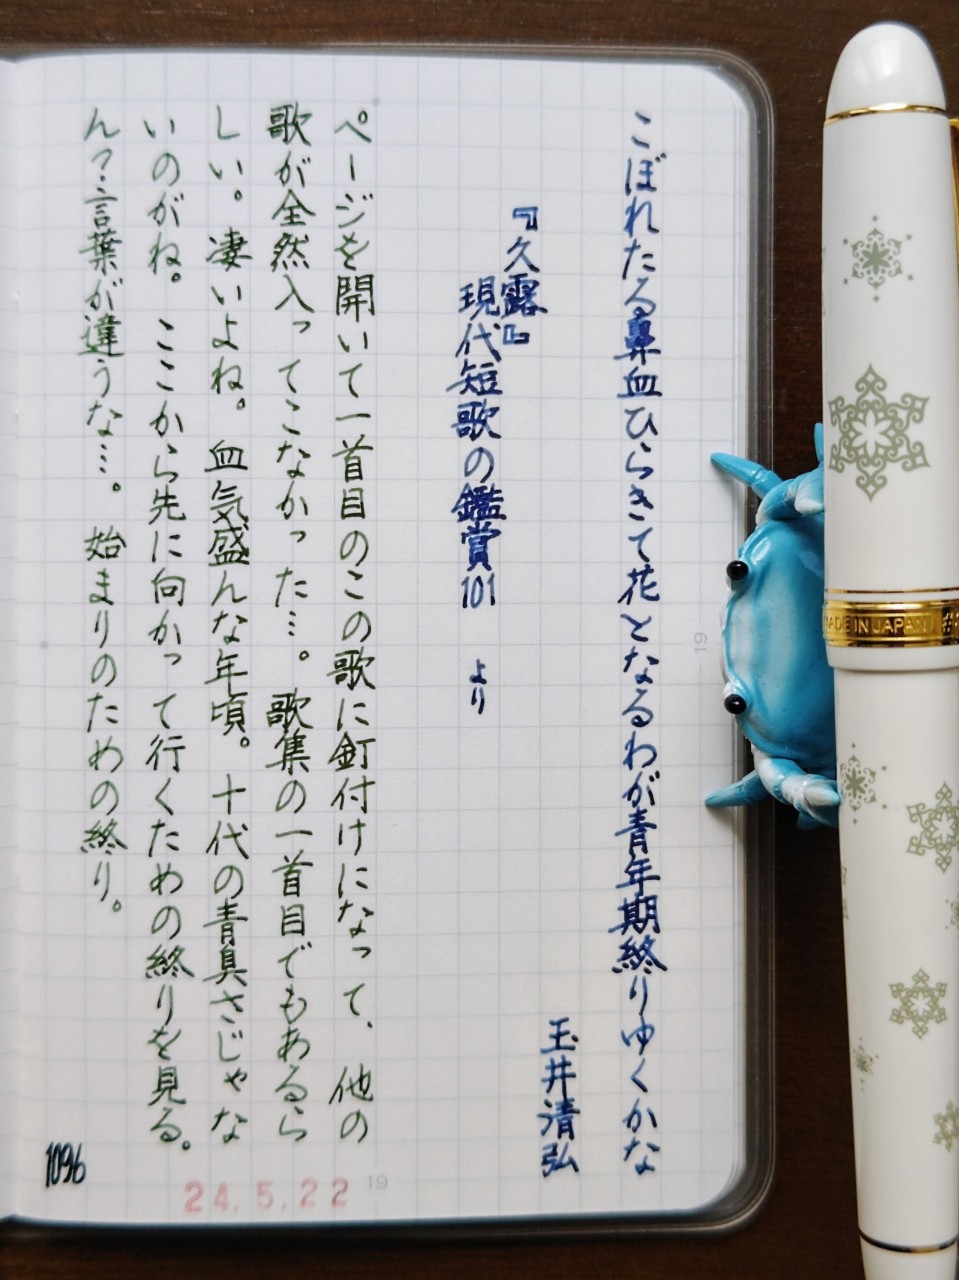 こぼれたる鼻血ひらきて花となるわが青年期終りゆくかな
玉井清弘
『久露』
現代短歌の鑑賞101 より
ページを開いて一首目のこの歌に釘付けになって、他の
歌が全然入ってこなかった…。歌集の一首目でもあるら
しい。凄いよね。血気盛んな年頃。十代の青臭さじゃな
いのがね。ここから先に向かって行くための終りを見る。
ん?言葉が違うな…。始まりのための終り。
1096
24.5.22
19
19
MADE IN JAPAN